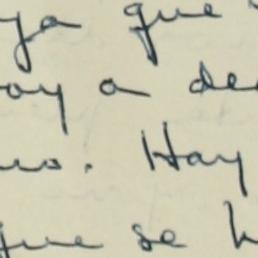 ya que
oy a de
no. Hay
que se h